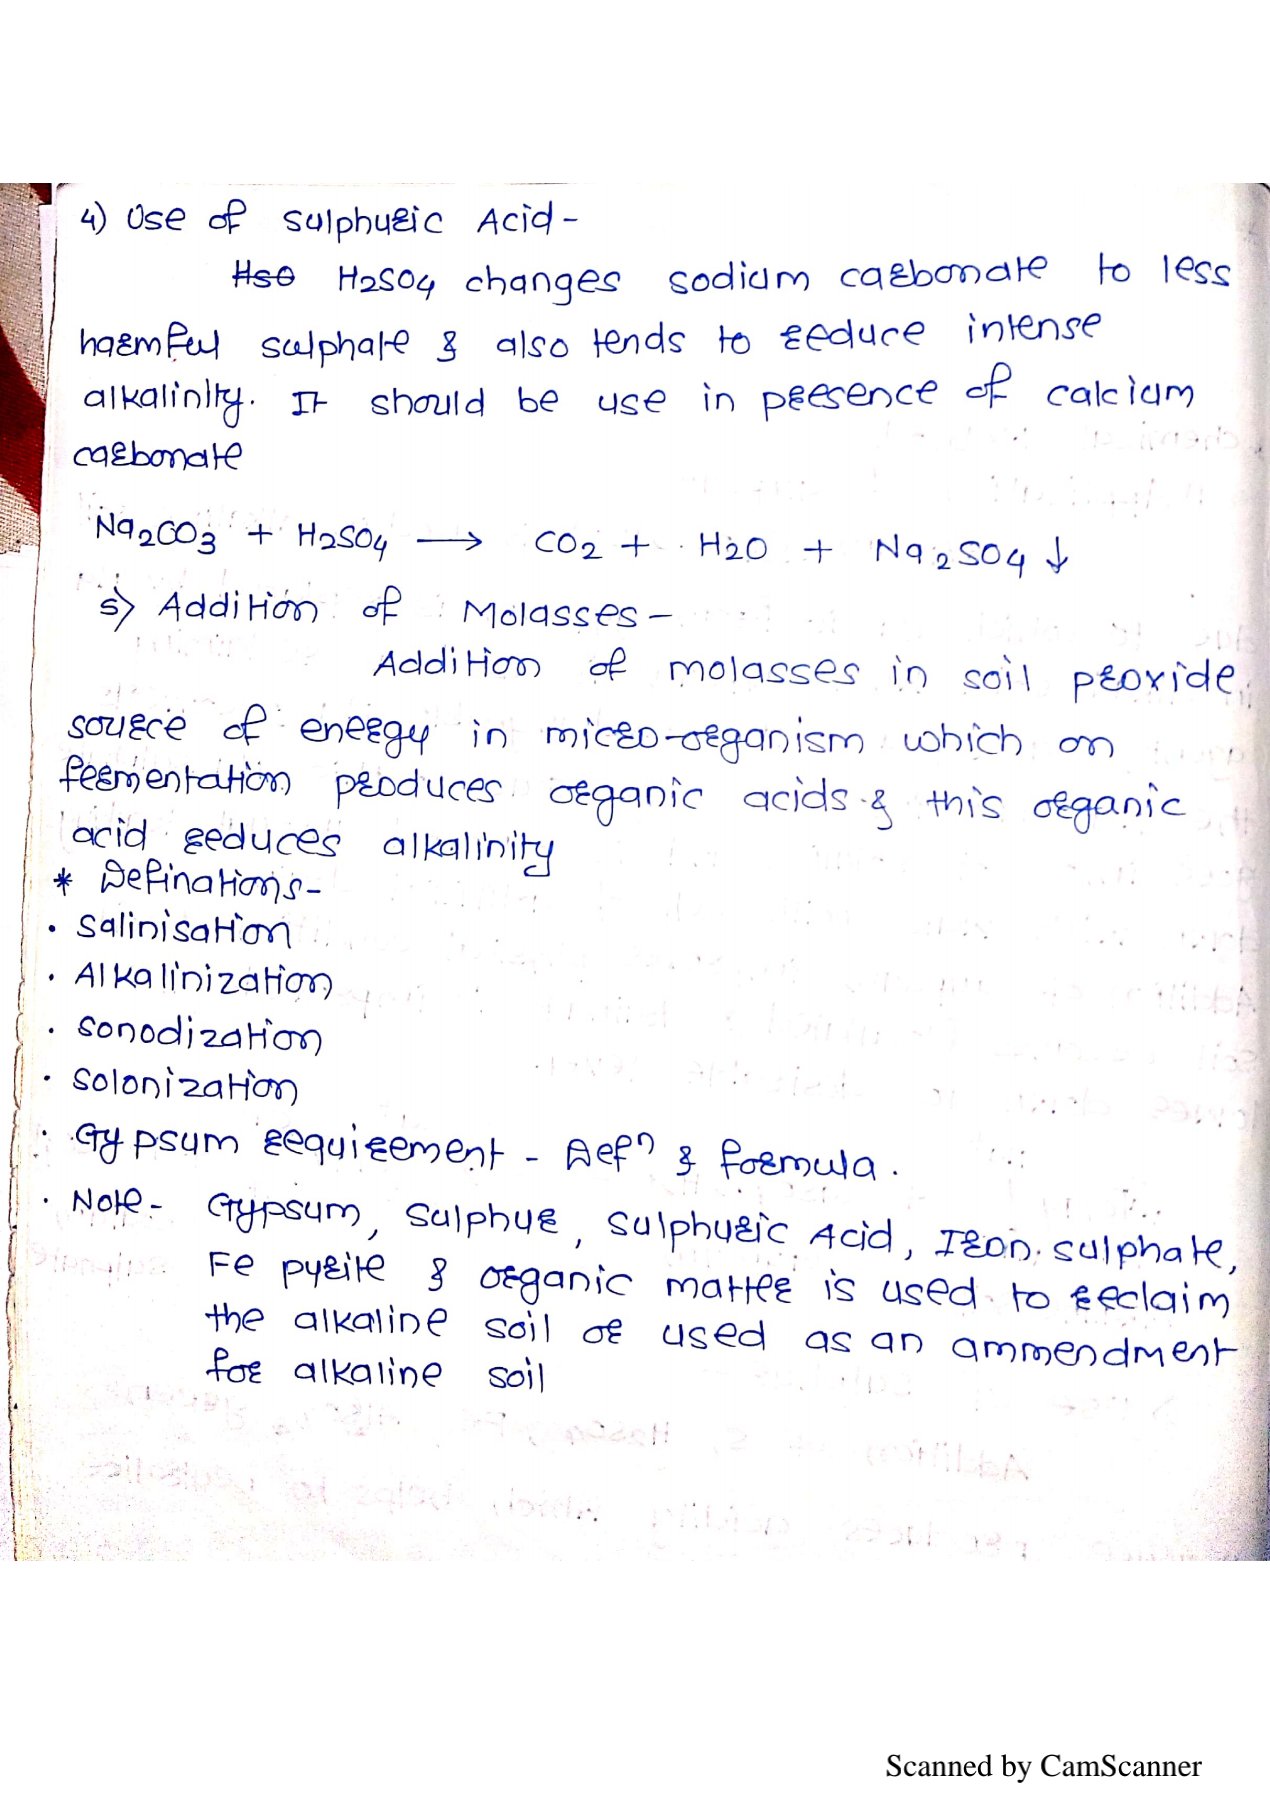 4) Use of Sulphuric Acid -
HSO H2SO4 changes sodium carbonate to less
harmful sulphate & also tends to reduce intense
alkalinity. It should be use in presence of calcium
carbonate
Na2CO3 + H2SO4 → CO2 + H2O + Na2SO4 ↓
5) Addition of Molasses -
Addition of molasses in soil proxide
source of energy in micro-organism which on
fermentation produces organic acids & this organic
acid reduces alkalinity
* Definations -
• Salinisation
• Alkalinization
• Sonodization
• Solonization
• Gypsum requirement - Defn & formula.
• Note - Gypsum, Sulphur, Sulphuric Acid, Iron sulphate,
Fe pyrite & organic matter is used to reclaim
the alkaline soil or used as an ammendment
for alkaline soil
Scanned by CamScanner